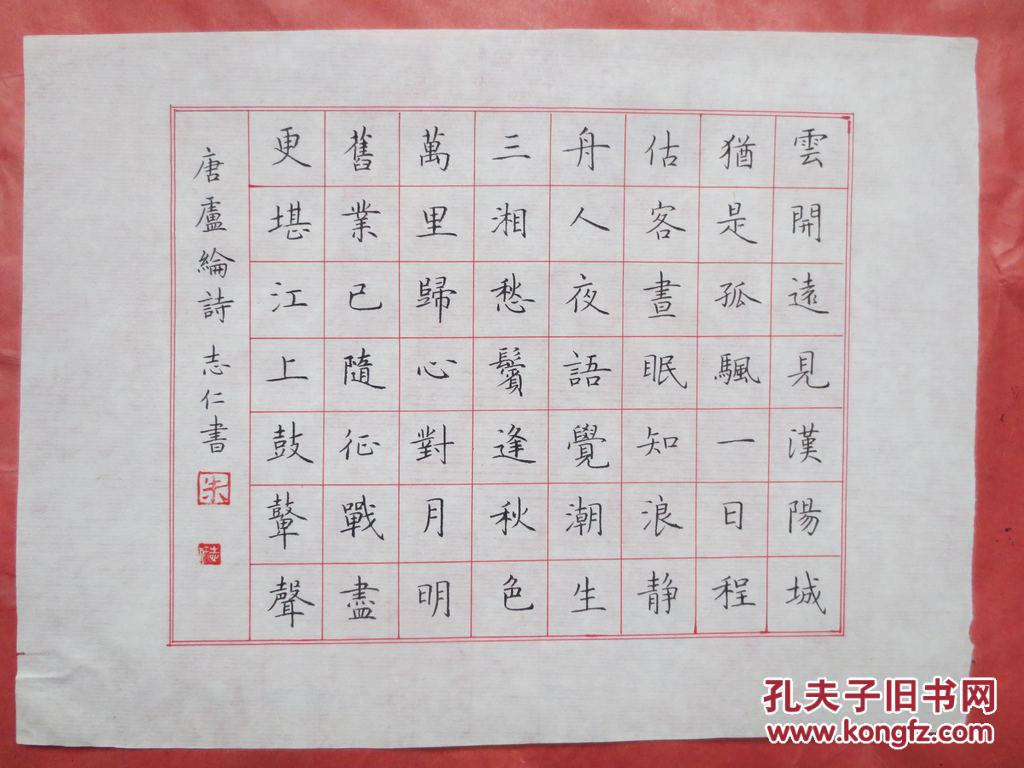 雲開遠見漢陽城
猶是孤颿一日程
估客晝眠知浪静
舟人夜語覺潮生
三湘愁鬢逢秋色
萬里歸心對月明
舊業已隨征戰盡
更堪江上鼓鼙聲
唐盧綸詩 志仁書
朱
志仁
孔夫子旧书网
www.kongfz.com